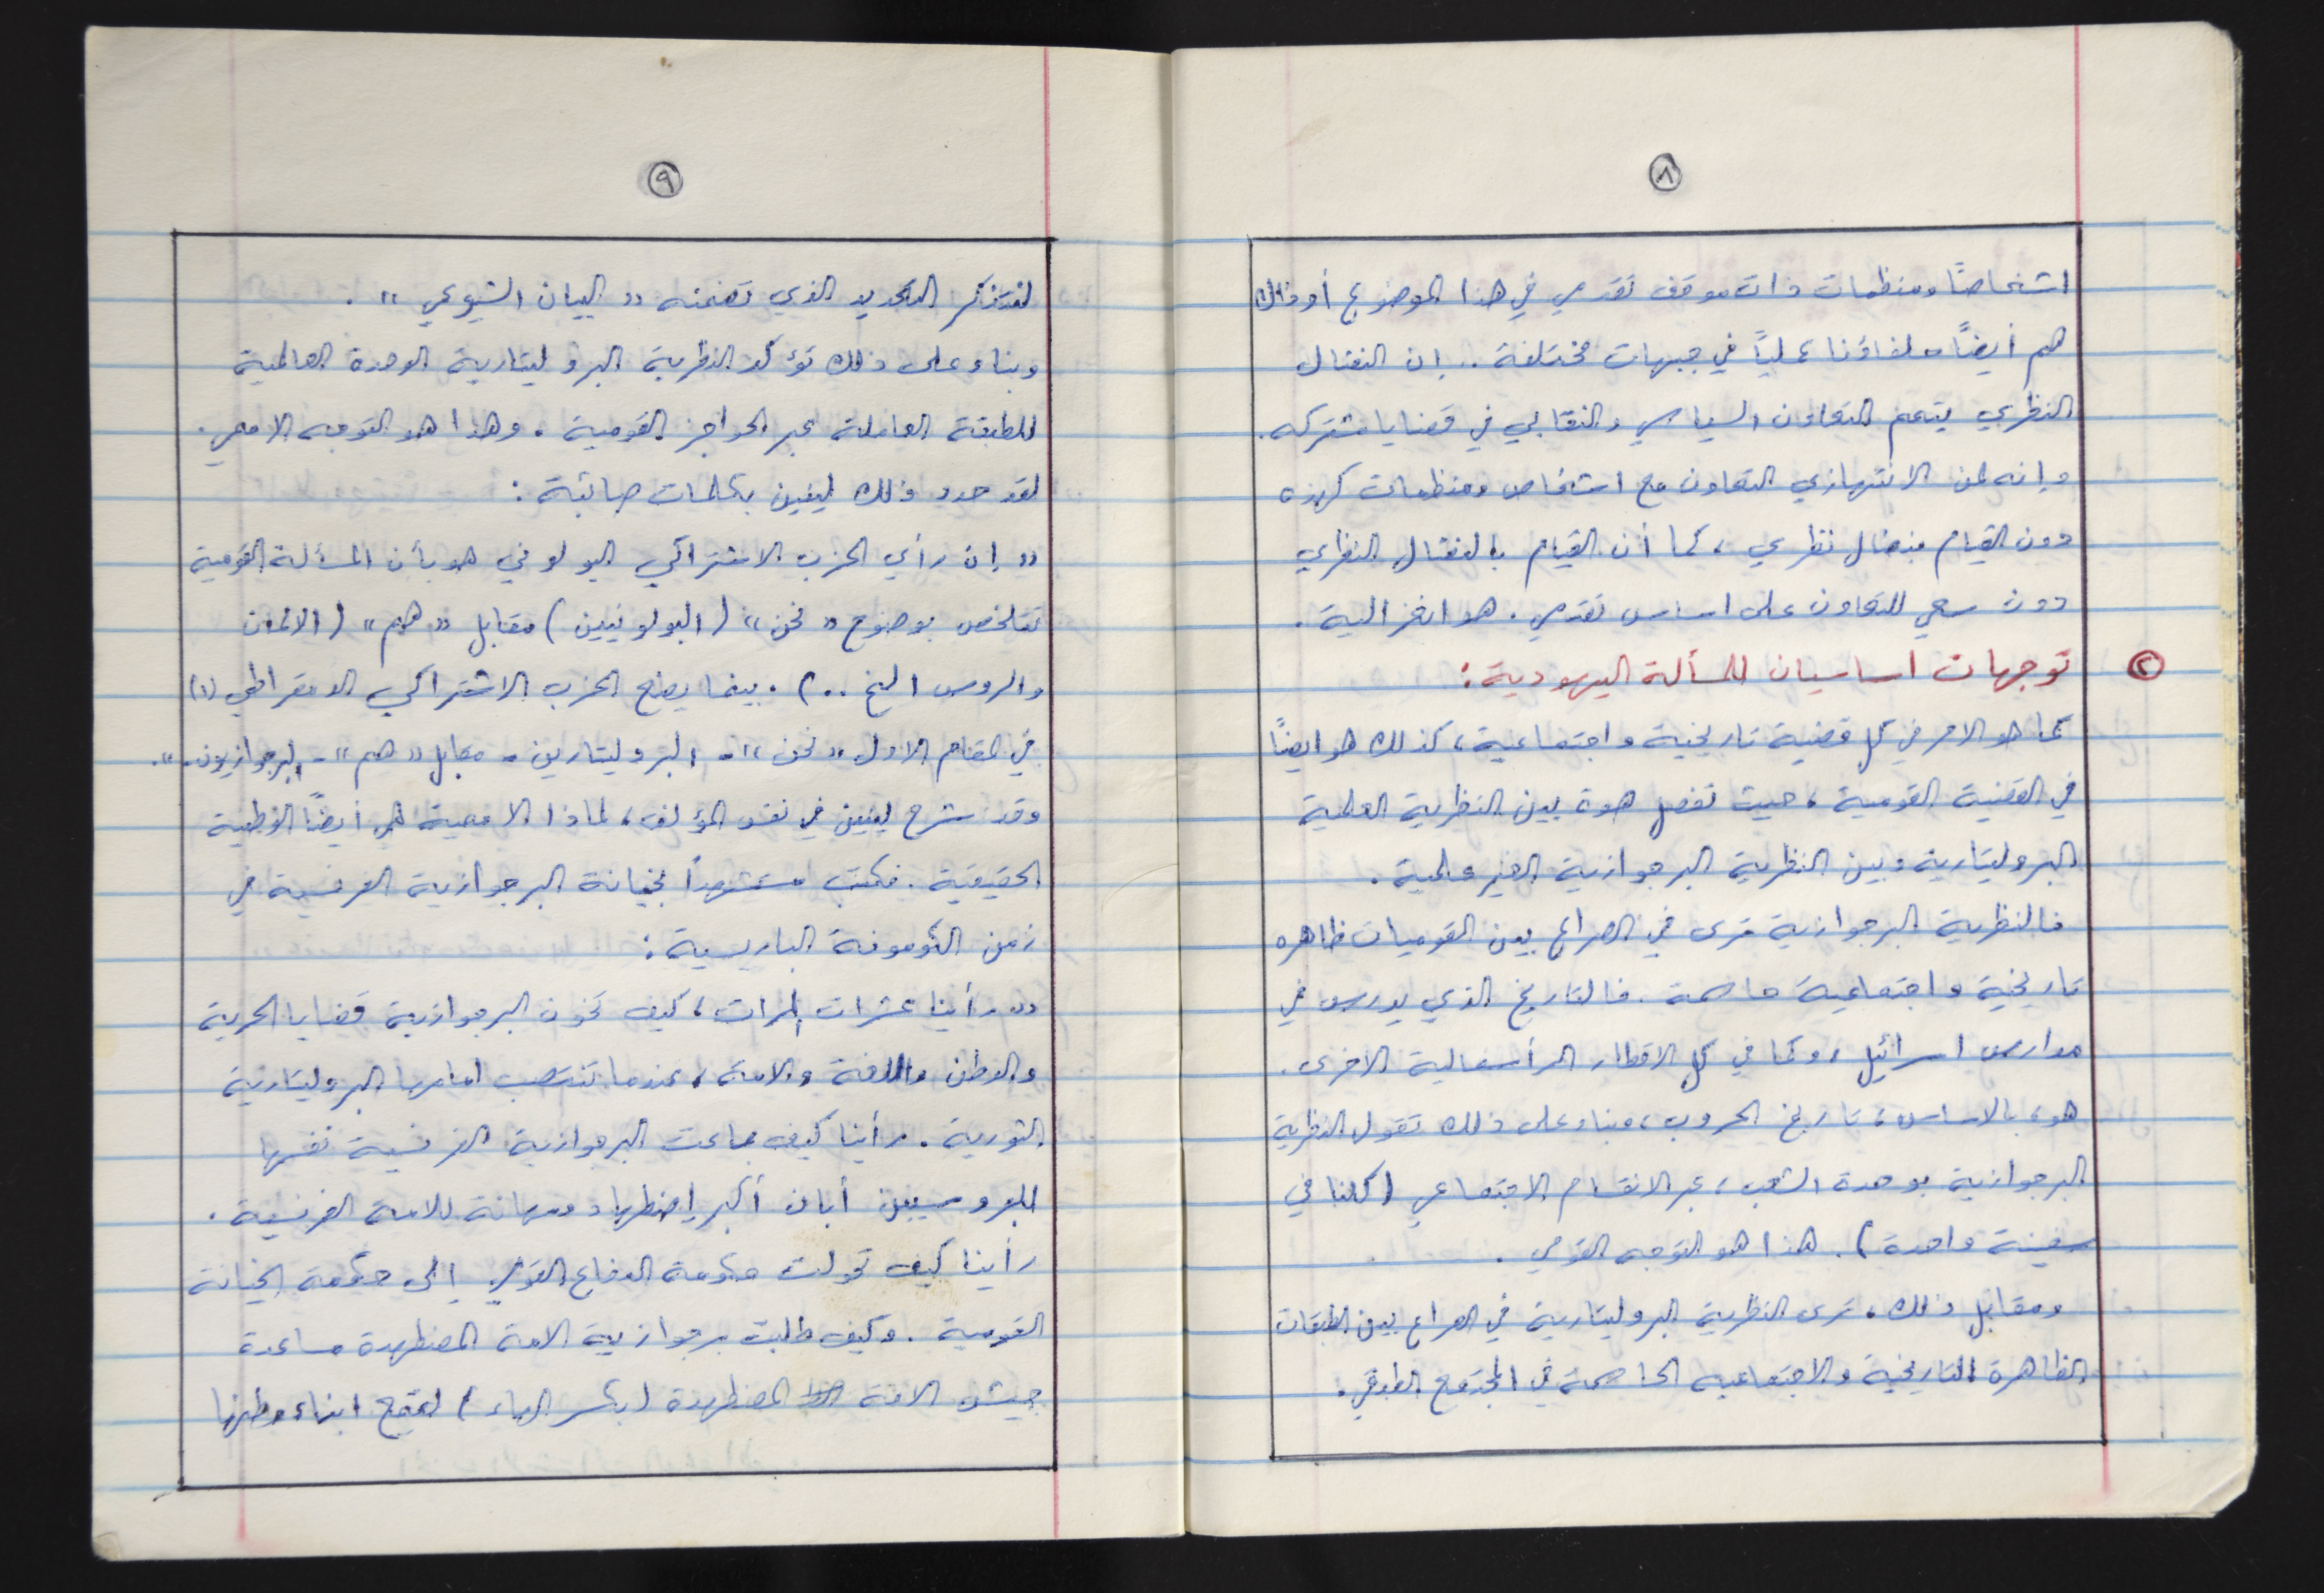 ٨
اشخاصًا ومنظمات ذات موقف تقدمي في هذا الموضوع أو ذاك
هم أيضًا - لفاؤنا عمليًا في جبهات مختلفة .. إن النضال
النظري يتمم التعاون السياسي والنقابي في قضايا مشتركه .
وإنه لمن الانتهازي التعاون مع اشخاص ومنظمات كهذه
دون القيام بنضال نظري ، كما أن القيام بالنضال النظري
دون سعي للتعاون على اساس تقدمي . هو انغزالية .
٢ توجهان اساسيان للمسألة اليهودية :
كما هو الامر في كل قضية تاريخية واجتماعية ، كذلك هو ايضًا
في القضية القومية ، حيث تفصل هوة بين النظرية العلمية
البروليتارية وبين النظرية البرجوازية الغير علمية .
فالنظرية البرجوازية ترى في الصراع بين القوميات ظاهره
تاريخية واجتماعية حاسمة . فالتاريخ الذي يدرس في
مدارس اسرائيل ، وكما في كل الاقطار الرأسمالية الاخرى .
هو ، بالاساس ، تاريخ الحروب ، وبناء على ذلك تقول النظرية
البرجوازية بوحدة الشعب ، عبر الانقسام الاجتماعي ( كلنا في
سفينة واحدة ) . هذا هو التوجه القومي .
ومقابل ذلك ، ترى النظرية البروليتارية في الصراع بين الطبقات
الظاهرة التاريخية والاجتماعيه الحاسمة في المجتمع الطبقي .
٩
لنتذكر التحديد الذي تضمنه " البيان الشيوعي " .
وبناء على ذلك تؤكد النظرية البروليتارية الوحدة العالمية
للطبقة العاملة عبر الحواجز القومية . وهذا هو التوجه الاممي .
لقد حدد ذلك لينين بكلمات صائبة :
" إن رأي الحزب الاشتراكي البولوني هو بأن المسألة القومية
تتلخص بوضوع " نحن " ( البولونيين ) مقابل " هم " ( الالمان
والروس الخ .. ) . بينما يضع الحزب الاشتراكي الدمقراطي (١)
في المقام الاول " نحن " - البروليتارين - مقابل " هم " - البرجوازيون - " .
وقد شرح لينين في نفس المؤلف ، لماذا الاممية هي أيضًا الوطنية
الحقيقية . فكتب مستشهدًا بخيانة البرجوازية الفرنسية في
زمن الكومونة الباريسية :
" رأينا عشرات المرات ، كيف تخون البرجوازية قضايا الحرية
والوطن واللغة والامة ، عندما تنتصب امامها البروليتارية
الثورية . رأينا كيف باعت البرجوازية الفرنسية نفسها
للبروسيين أبان أكبر إضطهاد ومهانة للامة الفرنسية .
رأينا كيف تحولت حكومة الدفاع القومي إلى حكومة الخيانة
القومية . وكيف طلبت برجوازية الامة المضطهدة مساعدة
جيش الامة المضطهدة ( بكسر الهاء ) لقمع ابناء وطنها